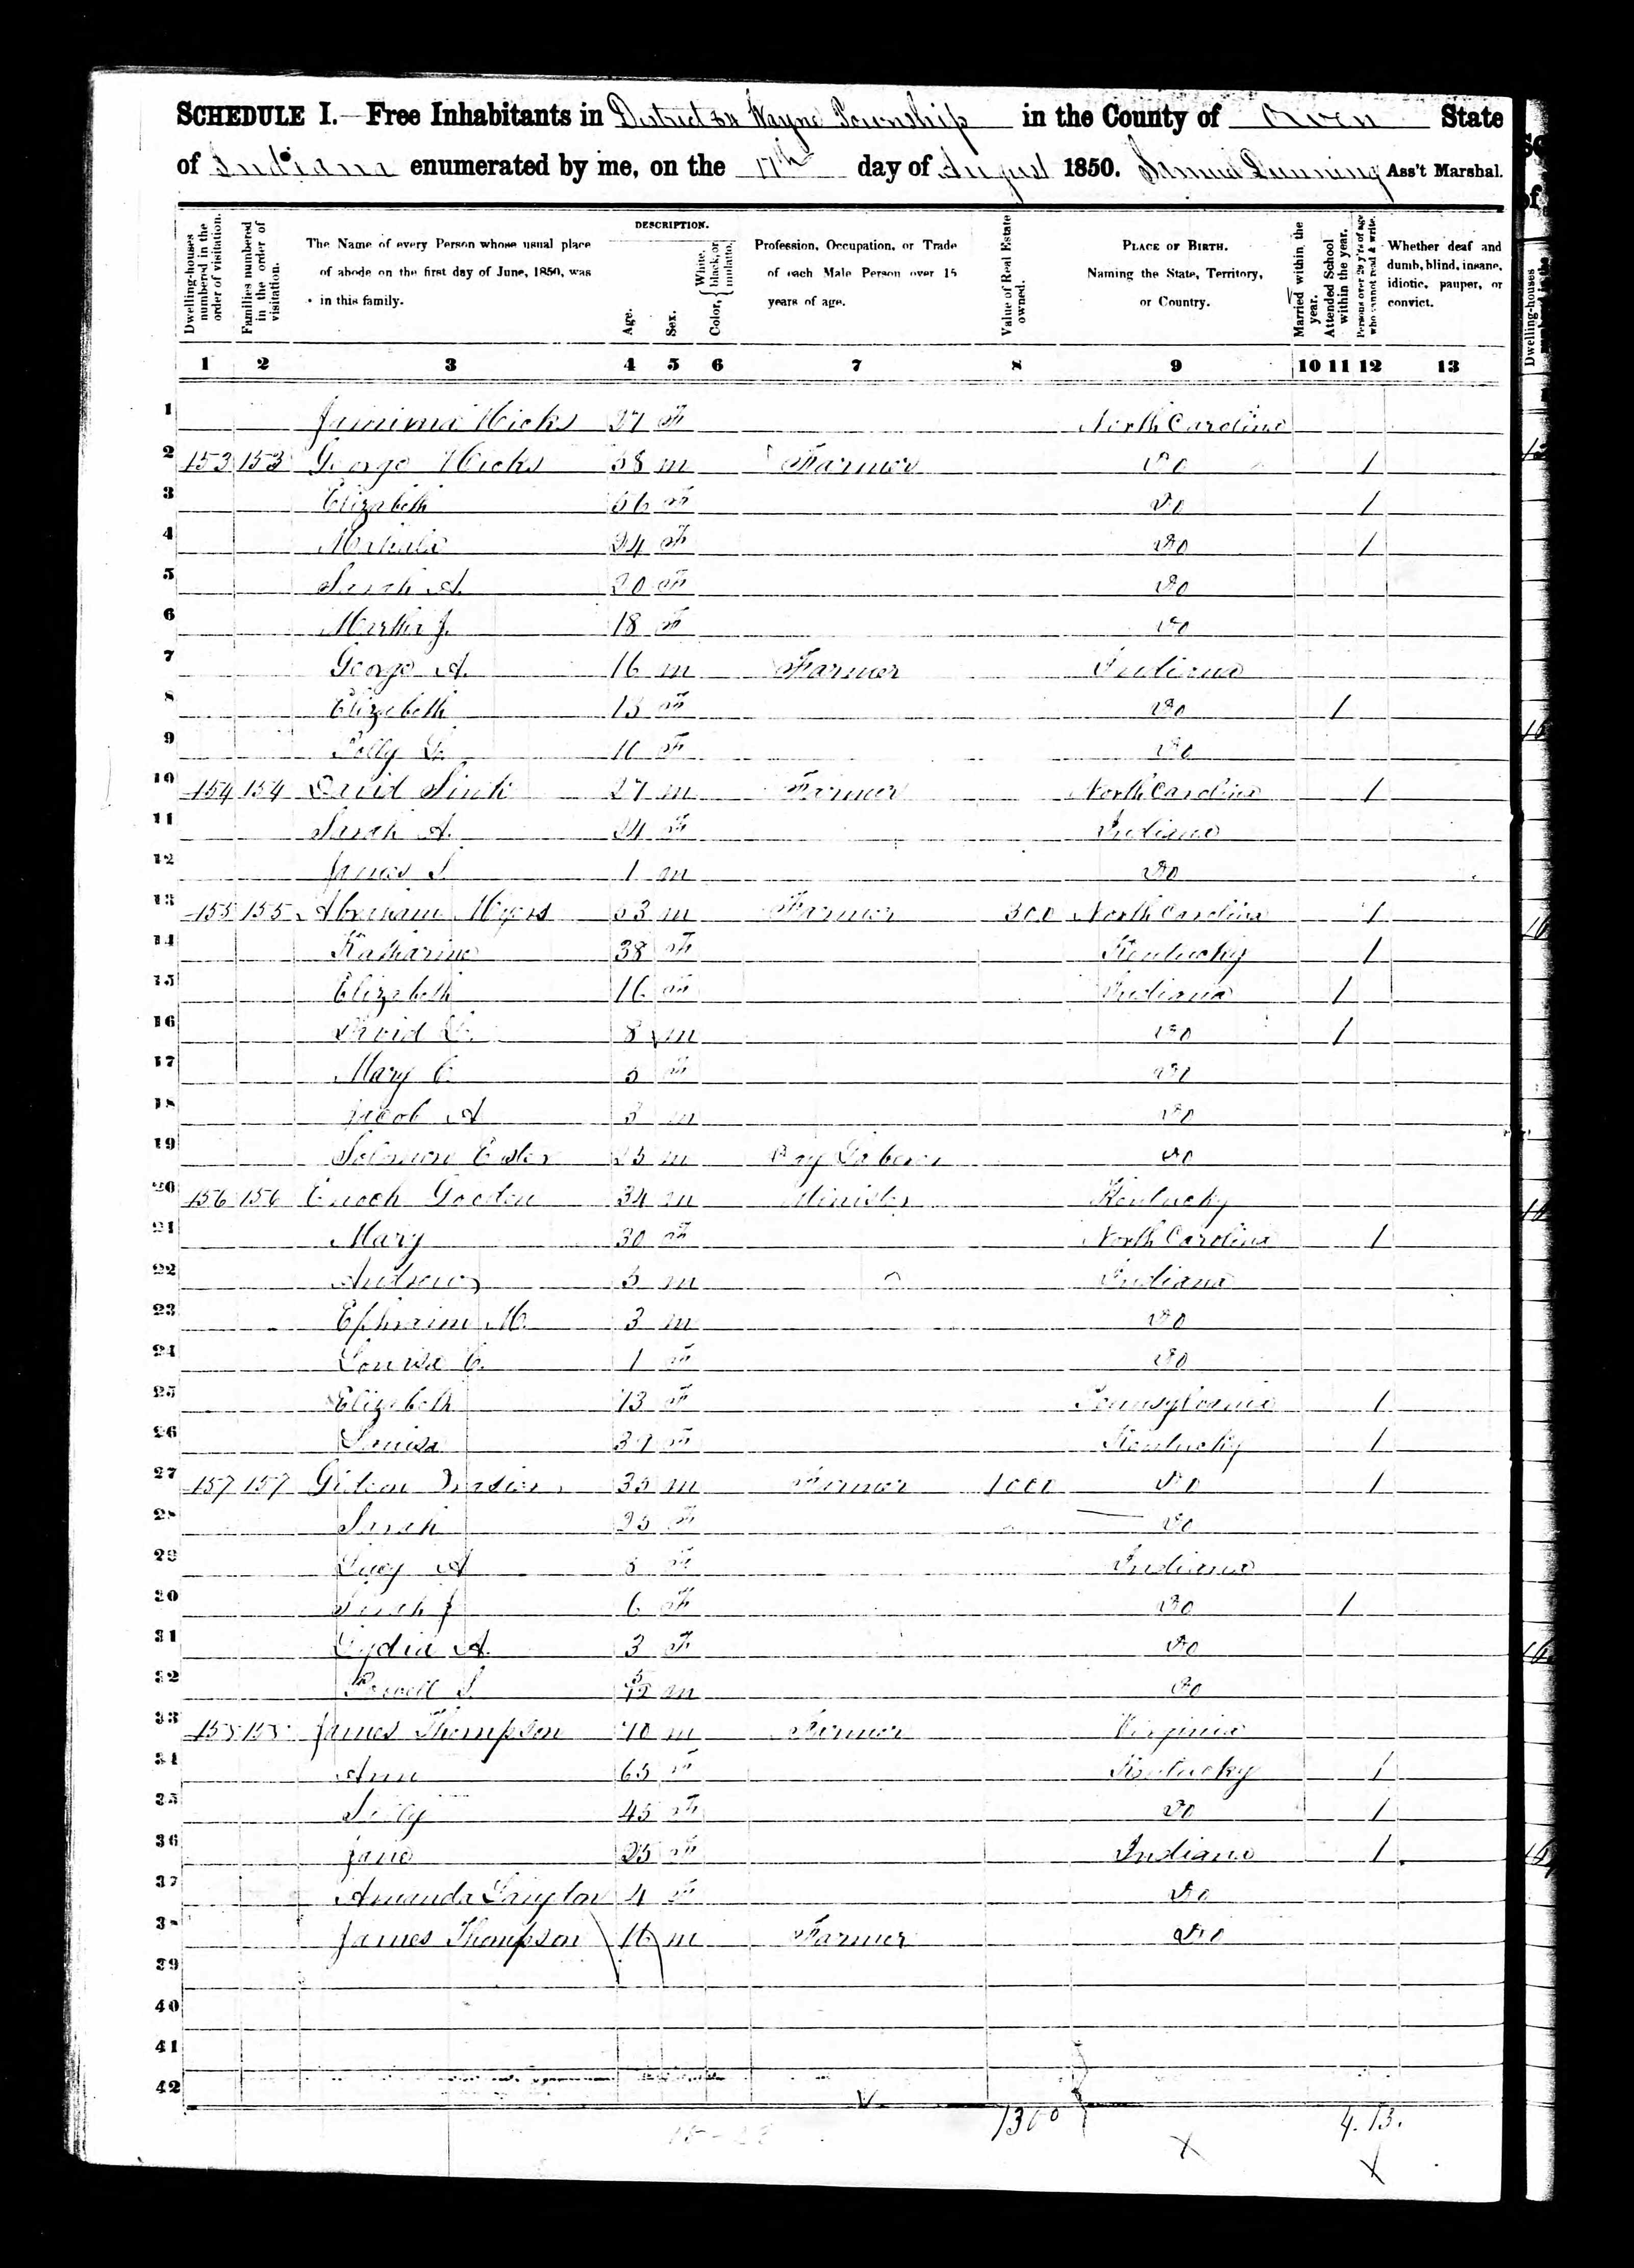 SCHEDULE I.—Free Inhabitants in District 84 Wayne Township in the County of Owen State
of Indiana enumerated by me, on the 17th day of August 1850. Samuel Dunning Ass't Marshal.
Dwelling-houses numbered in the order of visitation.
Families numbered in the order of visitation.
The Name of every Person whose usual place of abode on the first day of June, 1850, was in this family.
DESCRIPTION.
Age.
Sex.
Color, { White, black, or mulatto.
Profession, Occupation, or Trade of each Male Person over 15 years of age.
Value of Real Estate owned.
PLACE OF BIRTH. Naming the State, Territory, or Country.
Married within the year.
Attended School within the year.
Persons over 20 y'rs of age who cannot read & write.
Whether deaf and dumb, blind, insane, idiotic, pauper, or convict.
1 2 3 4 5 6 7 8 9 10 11 12 13
1 Jamima Hicks 27 F North Carolina
2 153 153 George Hicks 58 m Farmer Do 1
3 Elizabeth 56 F Do 1
4 24 F Do 1
5 Sarah A. 20 F Do
6 Martha J. 18 F Do
7 George A. 16 m Farmer Indiana
8 Elizabeth 13 F Do 1
9 Polly F Do
10 154 154 David Sink 27 m Farmer North Carolina 1
11 Sarah A. 24 F Indiana
12 James S 1 m Do
13 155 155 Abraham Myers 53 m Farmer 300 North Carolina 1
14 Katharine 38 F Kentucky 1
15 Elizabeth 16 F Indiana 1
16 David 8 m Do 1
17 Mary C. 5 F Do
18 Jacob A 3 m Do
19 Solomon 25 m Day Laborer Do
20 156 156 Enoch Gooden 34 m Minister Kentucky
21 Mary 30 F North Carolina 1
22 Andrew 5 m Indiana
23 Ephraim M. 3 m Do
24 Louisa C. 1 F Do
25 Elizabeth 73 F Pennsylvania 1
26 Louisa 39 F Kentucky 1
27 157 157 Gideon 35 m Farmer 1000 Do 1
28 Sarah 25 F Do
29 Lucy A 8 F Indiana
30 Sarah J 6 F Do 1
31 Lydia A. 3 F Do
32 S 5/12 m Do
33 158 158 James Thompson 70 m Farmer Virginia
34 Ann 65 F Kentucky 1
35 45 F Do 1
36 Jane 25 F Indiana 1
37 Amanda 4 F Do
38 James Thompson 16 m Farmer Do
39
40
41
42
1300 4. 13.